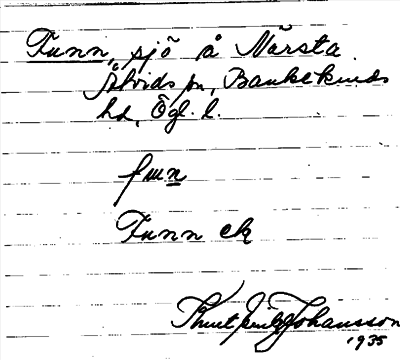 Funn, sjö å Närsta
Åtvids sn, Bankekinds
hd, Ögl. l.
funn
Funn ek
Knut Erik Johansson
1935